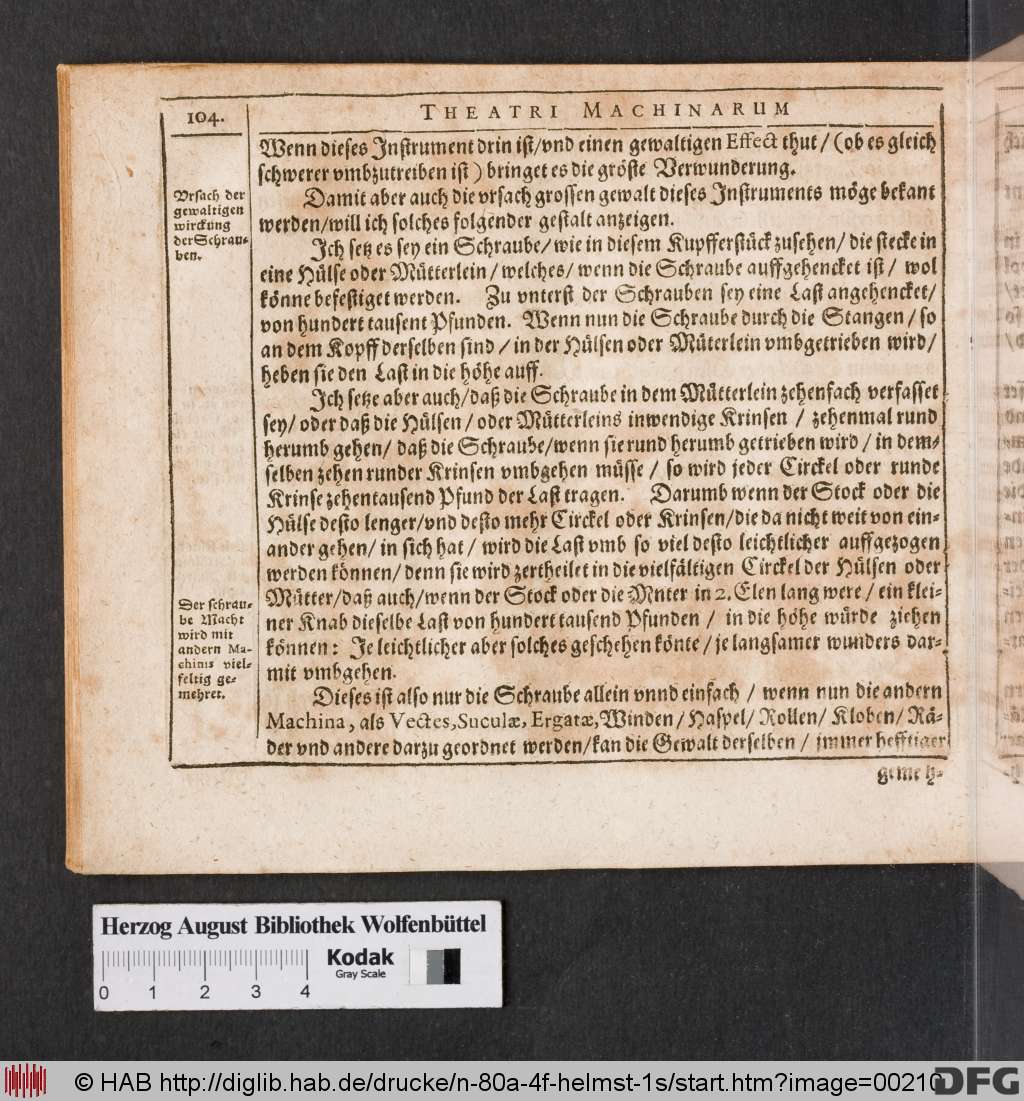 104.
THEATRI MACHINARUM
Wenn dieses Instrument drin ist/vnd einen gewaltigen Effect thut/(ob es gleich
schwerer vmbzutreiben ist) bringet es die gröste Verwunderung.
Vrsach der
gewaltigen
wirckung
der Schrau-
ben.
Damit aber auch die vrsach grossen gewalt dieses Instruments möge bekant
werden/will ich solches folgender gestalt anzeigen.
Ich setz es sey ein Schraube/wie in diesem Kupfferstück zusehen/die stecke in
eine Hülse oder Mütterlein/welches/wenn die Schraube auffgehencket ist/ wol
könne befestiget werden. Zu vnterst der Schrauben sey eine Last angehencket/
von hundert tausent Pfunden. Wenn nun die Schraube durch die Stangen/so
an dem Kopff derselben sind/in der Hülsen oder Müterlein vmbgetrieben wird/
heben sie den Last in die höhe auff.
Ich setze aber auch/daß die Schraube in dem Mütterlein zehenfach verfasset
sey/oder daß die Hülsen/oder Mütterleins inwendige Krinsen/ zehenmal rund
herumb gehen/daß die Schraube/wenn sie rund herumb getrieben wird/in dem-
selben zehen runder Krinsen vmbgehen müsse/so wird jeder Circkel oder runde
Krinse zehentausend Pfund der Last tragen. Darumb wenn der Stock oder die
Hülse desto lenger/vnd desto mehr Circkel oder Krinsen/die da nicht weit von ein-
ander gehen/in sich hat/wird die Last vmb so viel desto leichtlicher auffgezogen
werden können/denn sie wird zertheilet in die vielfältigen Circkel der Hülsen oder
Mütter/daß auch/wenn der Stock oder die Mnter in 2. Elen lang were/ein klei-
ner Knab dieselbe Last von hundert tausend Pfunden/ in die höhe würde ziehen
können: Je leichtlicher aber solches geschehen könte/je langsamer wunders dar-
mit vmbgehen.
Der schrau-
be Macht
wird mit
andern Ma-
chinis viel-
feltig ge-
mehret.
Dieses ist also nur die Schraube allein vnnd einfach/ wenn nun die andern
Machina, als Vectes, Suculæ, Ergatæ, Winden/Haspel/Rollen/Kloben/Rä-
der vnd andere darzu geordnet werden/kan die Gewalt derselben/ jmmer hefftiger
gemeh-
Herzog August Bibliothek Wolfenbüttel
Kodak
Gray Scale
0 1 2 3 4
© HAB http://diglib.hab.de/drucke/n-80a-4f-helmst-1s/start.htm?image=00210
DFG